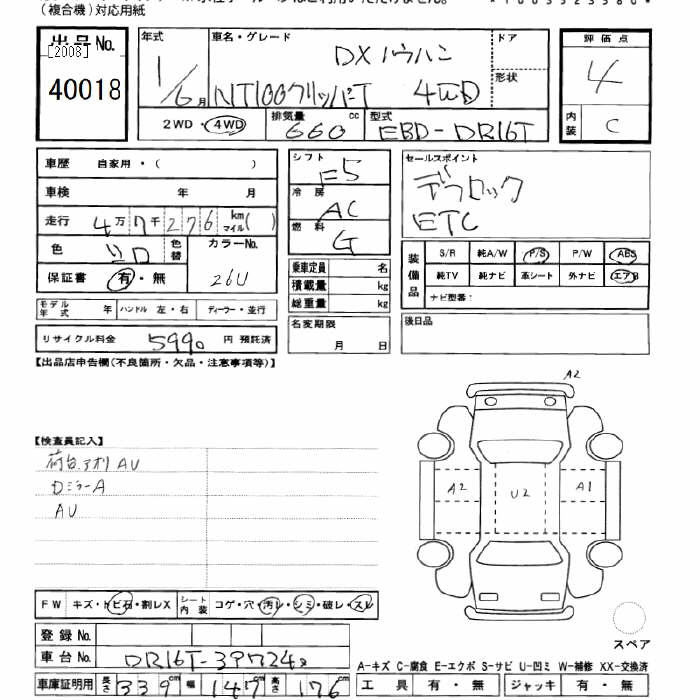 (複合機)対応用紙
出品No.
[2008]
40018
年式
1/6月
車名・グレード
DX
NT100クリッパーT 4WD
ドア
形状
2WD・4WD
排気量
660 cc
型式
EBD-DR16T
評価点
4
内装
C
車歴 自家用・( )
車検 年 月
走行 4万7千276 km マイル( )
色
色替
カラーNo.
26U
保証書 有・無
モデル年式 年 ハンドル 左・右 ディーラー・並行
リサイクル料金 5990 円 預託済
シフト
F5
冷房
AC
燃料
G
乗車定員 名
積載量 kg
総重量 kg
名変期限
月 日
セールスポイント
デフロック
ETC
装備品
S/R 純A/W P/S P/W ABS
純TV 純ナビ 革シート 外ナビ エアB
ナビ型番:
後日品
【出品店申告欄(不良箇所・欠品・注意事項等)】
【検査員記入】
荷台.アオリ AU
Dミラー A
AU
A2
A2
U2
A1
スペア
FW キズ・トビ石・割レX シート内装 コゲ・穴・汚レ・シミ・破レ・スレ
登録No.
車台No. DR16T-397242
車庫証明用 長さ 339cm 幅 147cm 高さ 176cm
A-キズ C-腐食 E-エクボ S-サビ U-凹ミ W-補修 XX-交換済
工具 有・無 ジャッキ 有・無